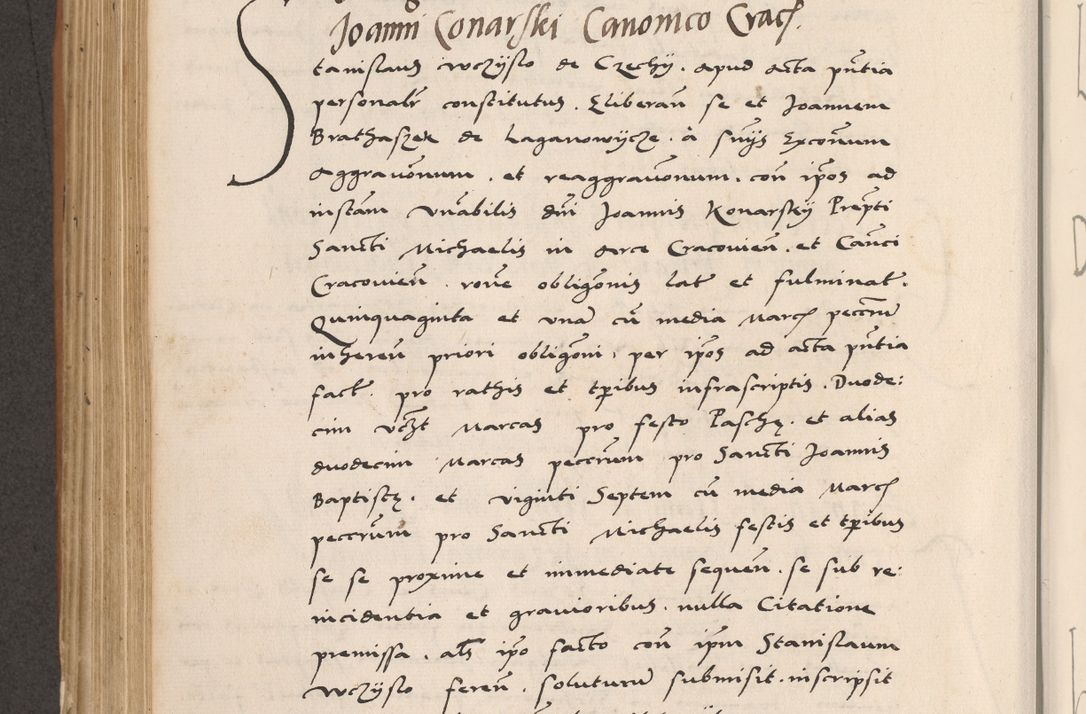 Joanni Conarski Canonico Crac̃
Stanislaus wczyslo de Czechy. Apud Acta pñtia
personalr̃ constitutus. Eliberañ se et Joannem
Brathaszek de Laganowijcze. à suijs Excoñum
Aggravõnum. et reaggravõnum. coñ ip̃os ad
instañ vñabilis dñi Joannis Konarskij Prep̃ti
Sancti Michaelis in Arce Cracovieñ. et Cañci
Cracovieñ. roñe obligõnis lat̃ et fulminat̃.
Quinquaginta et vna cũ media Marc̃ peccũe
inhereñ priori obligõni, per ip̃os ad acta pñtia
fact̃. pro rathis et tp̃ibus infrascriptis. Duode:
cim vc̃zt Marcas pro festo Paschę. et alias
duodecim Marcas peccũm pro Sancti Joannis
Baptistę. et viginti Septem cũ media Marc̃
peccũm pro Sancti Michaelis festis et tp̃ibus
se se proxime et immediate sequeñ. se sub re:
incidentia et gravioribus. nulla Citatione
premissa. als̃ ip̃o facto coñ ip̃m Stanislaum
wczijslo fereñ. soluturũ submisit. inscripsit